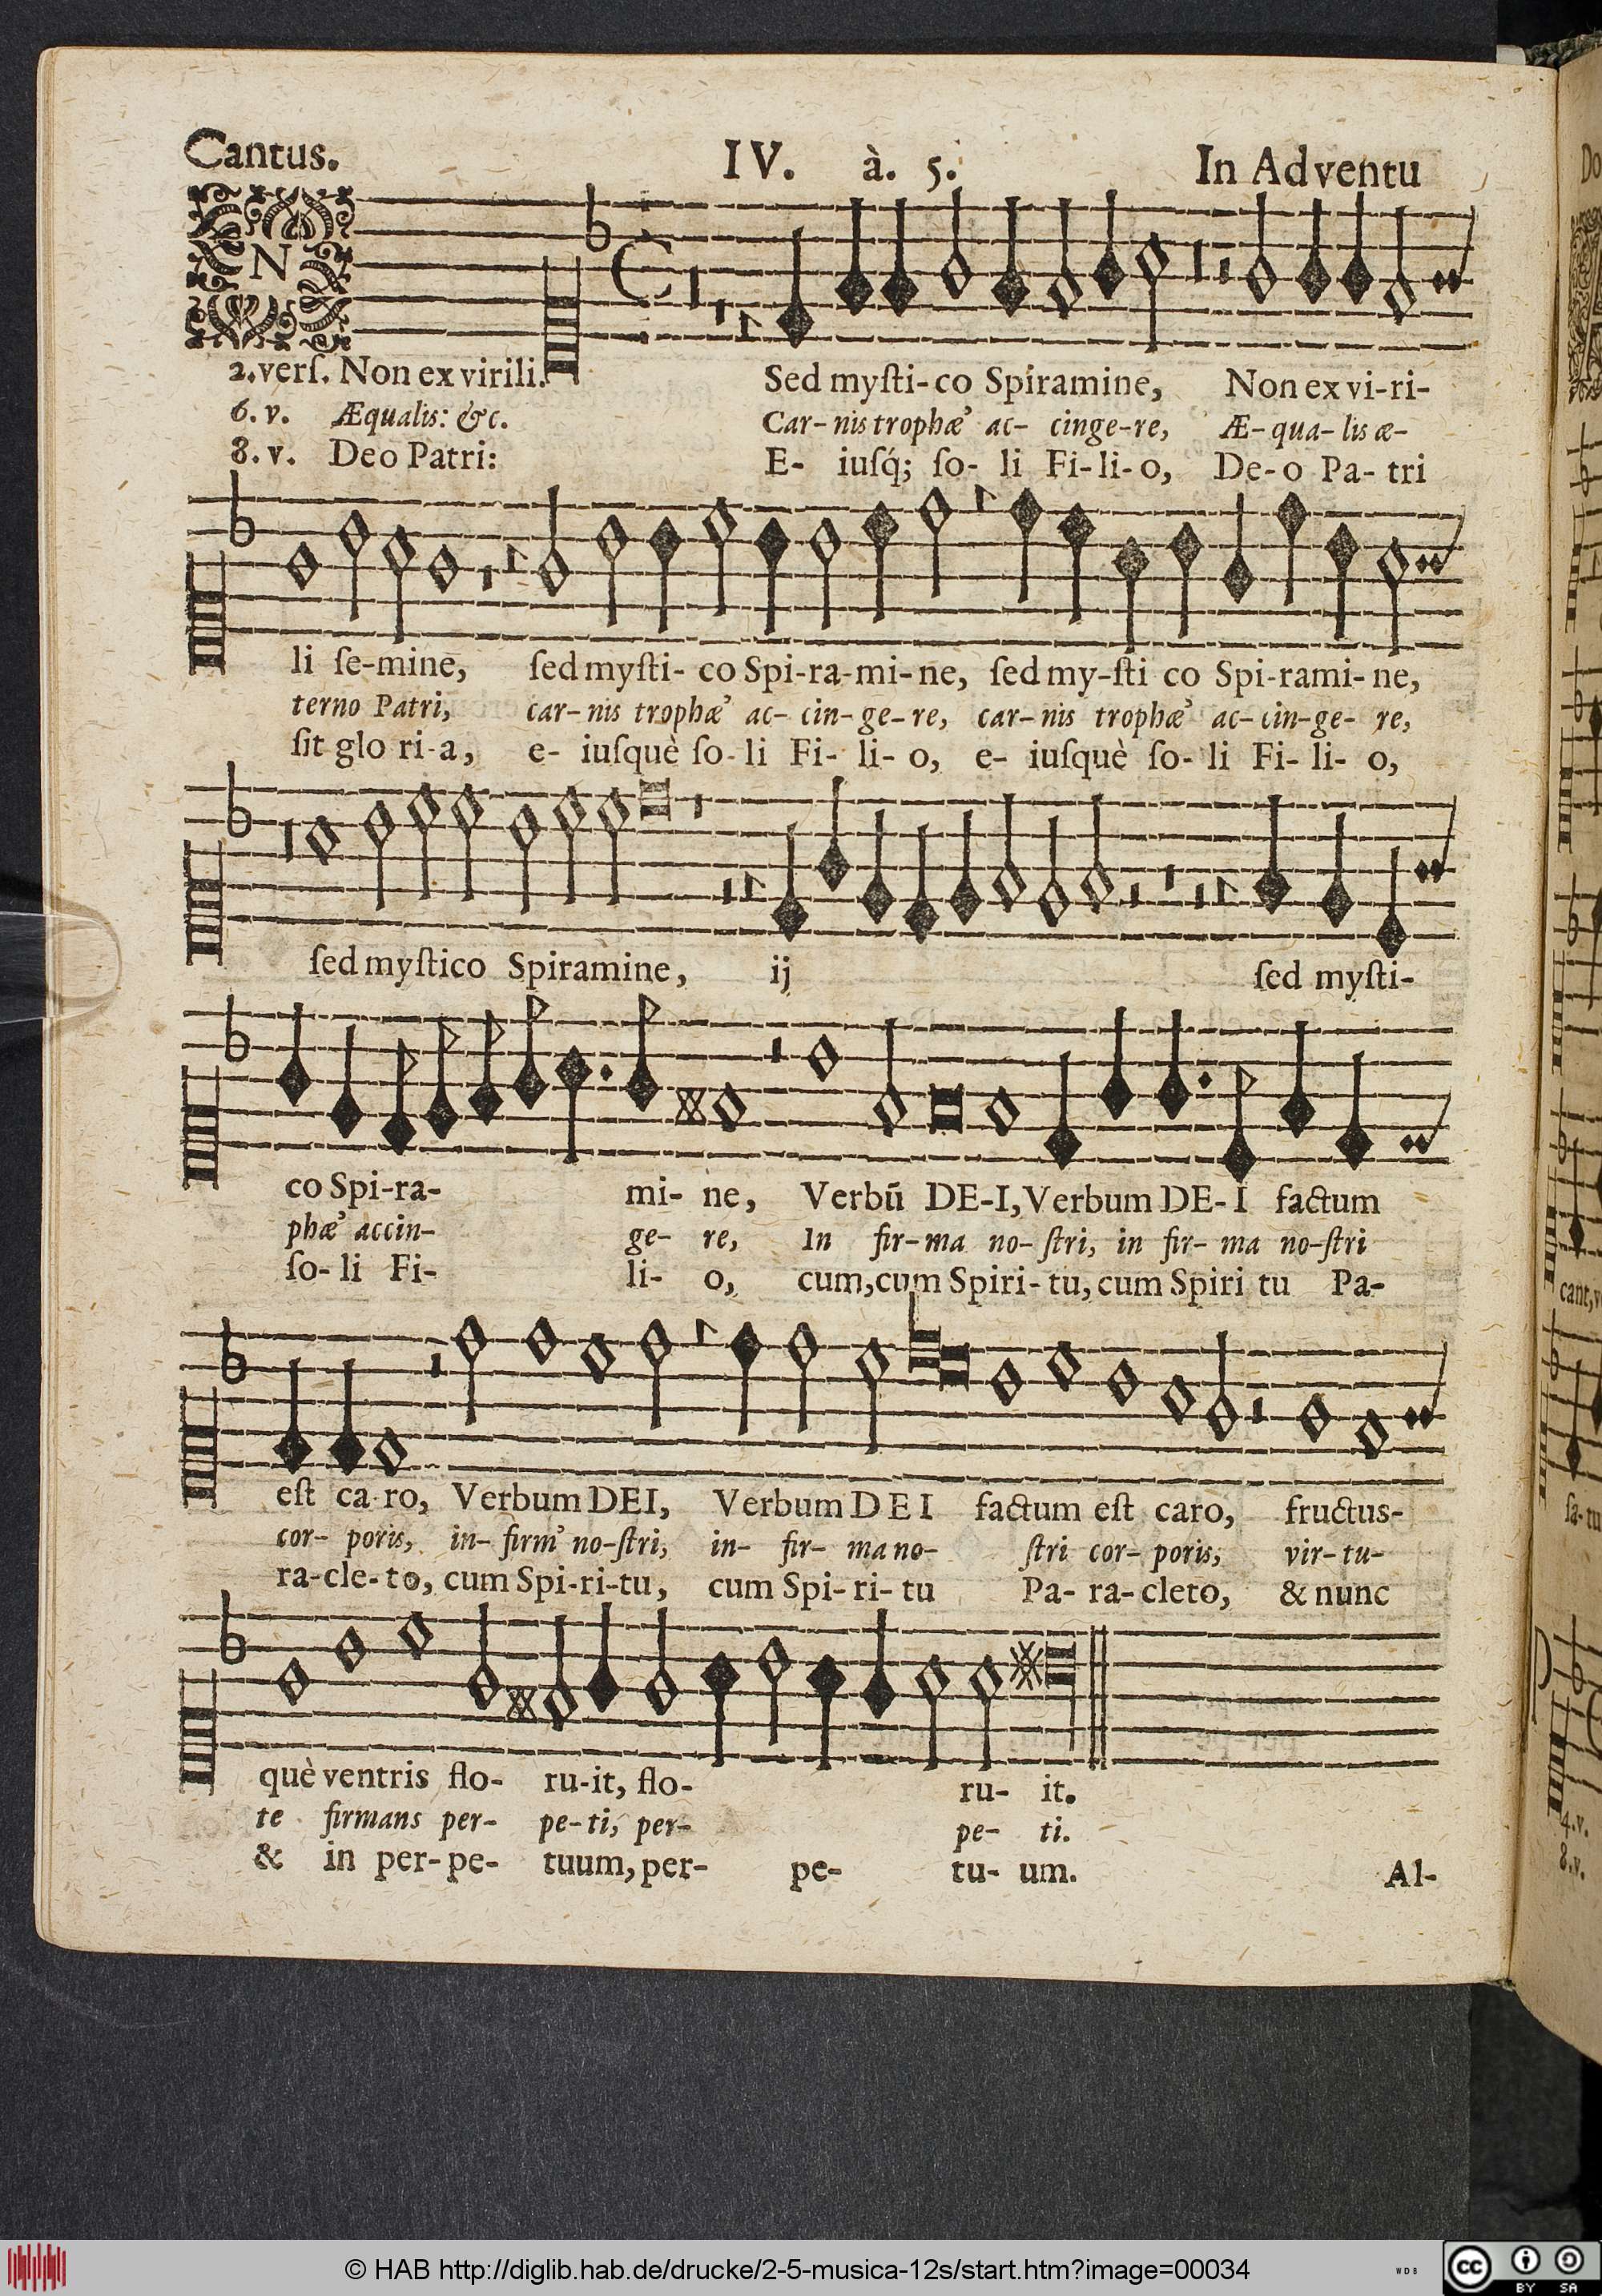 Cantus. IV. à. 5. In Adventu
N
2.verſ. Non ex virili. Sed myſti-co Spiramine, Non ex vi-ri-
6. v. Æqualis: &c. Car-nis trophæ' ac- cinge-re, Æ-qua-lis æ-
8. v. Deo Patri: E- iuſq́; ſo- li Fi-li-o, De-o Pa-tri
li ſe-mine, ſed myſti- co Spi-ra-mi-ne, ſed my-ſti co Spi-rami-ne,
terno Patri, car-nis trophæ' ac- cin-ge-re, car-nis trophæ' ac-cin-ge- re,
ſit glo ri-a, e- iuſquè ſo-li Fi- li- o, e- iuſquè ſo- li Fi- li- o,
ſed myſtico Spiramine, ij ſed myſti-
co Spi-ra- mi- ne, Verbū DE-I, Verbum DE-I factum
phæ' accin- ge- re, In fir-ma no-ſtri, in fir- ma no-ſtri
ſo-li Fi- li- o, cum, cum Spiri-tu, cum Spiri tu Pa-
eſt ca-ro, Verbum DEI, Verbum DEI factum eſt caro, fructus-
cor- poris, in- firm' no-ſtri, in- fir- ma no- ſtri cor- poris, vir-tu-
ra-cle-to, cum Spi-ri-tu, cum Spi-ri-tu Pa- ra-cleto, & nunc
què ventris flo- ru-it, flo- ru- it.
te firmans per- pe-ti, per- pe- ti.
& in per-pe- tuum, per- pe- tu- um.
Al-
Do
cant,
ſa-tu
4.v.
8.v.
© HAB http://diglib.hab.de/drucke/2-5-musica-12s/start.htm?image=00034
WDB
cc BY SA